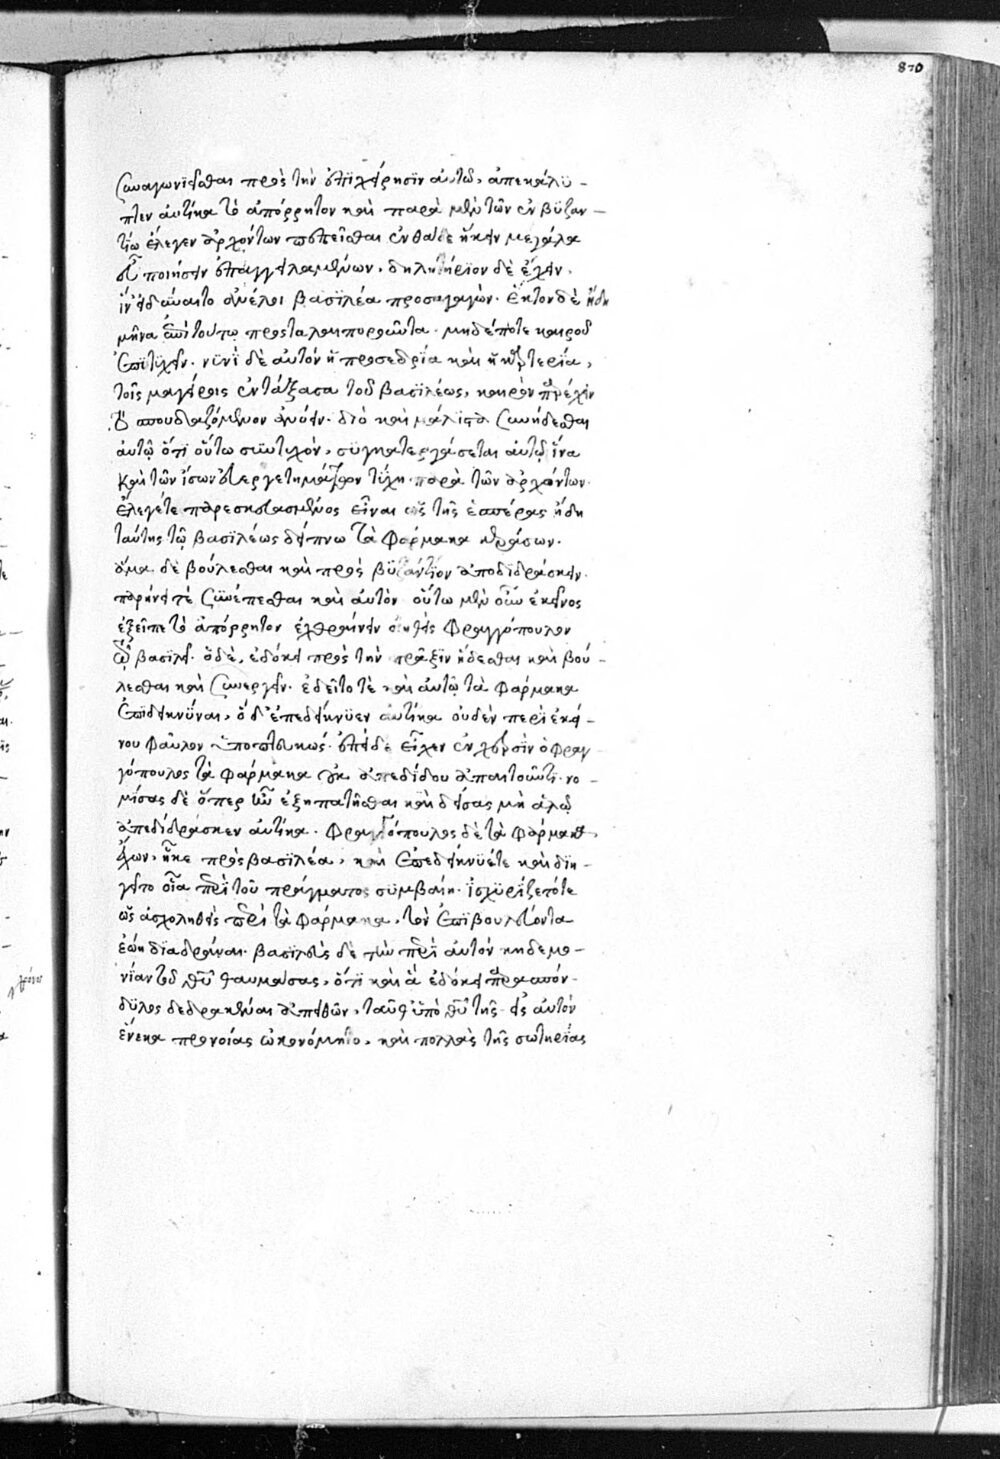 870
συναγωνίσασθαι πρὸς τὴν ἐπιχείρησιν αὐτῶ, ἀπεκάλυ -
πτεν αὐτίκα τὸ ἀπόρρητον καὶ παρὰ μὲν τῶν ἐν βυζαν -
τίω ἔλεγεν ἀρχόντων πεπεῖσθαι ἐνθάδε ἥκειν μεγάλα
εὖ ποιήσειν ἐπαγγειλαμένων, δηλητήριον δὲ ἔχειν,
ἵν' εἰ δύναιτο ἀνέλοι βασιλέα προσαγαγών. ἕκτον δὲ ἤδη
μῆνα ἐπὶ τούτω προσταλαιπωροῦντα μηδέποτε καιροῦ
ἐπιτυχεῖν. νυνὶ δὲ αὐτὸν ἡ προσεδρία καὶ ἡ καρτερία,
τοῖς μαγείροις ἐντάξασα τοῦ βασιλέως, καιρὸν παρέχειν
τὸ σπουδαζόμενον ἀνύειν. διὸ καὶ μάλιστα συνήδεσθαι
αὐτῶ ὅτι οὕτω συντυχὸν, συγκατεργάσεται αὐτῶ ἵνα
καὶ τῶν ἴσων εὐεργετημάτων τύχη παρὰ τῶν ἀρχόντων.
ἔλεγέ τε παρεσκευασμένος εἶναι ὡς τῆς ἑσπέρας ἤδη
ταύτης τῶ βασιλέως δείπνω τὰ φάρμακα κεράσων.
ἅμα δὲ βούλεσθαι καὶ πρὸς βυζάντιον ἀποδιδράσκειν.
παρήνει τὲ συνέπεσθαι καὶ αὐτὸν οὕτω μὲν οὖν ἐκεῖνος
ἐξεῖπε τὸ ἀπόρρητον φραγγόπουλον
ὦ βασιλεῖ. ὁ δὲ, ἐδόκει πρὸς τὴν πρᾶξιν ἥδεσθαι καὶ βού -
λεσθαι καὶ συνεργεῖν. ἐδεῖτο τὲ καὶ αὐτῶ τὰ φάρμακα
ἐπιδεικνύναι, ὁ δ' ἐπεδείκνυεν αὐτίκα οὐδὲν περὶ ἐκεί -
νου φαῦλον ὑποπτευκώς. ἐπεὶ δὲ εἶχεν ἐν χερσὶν ὁ φραγ
γόπουλος τὰ φάρμακα οὐκ ἀπεδίδου ἀπαιτοῦντι. νο -
μίσας δὲ ὅπερ ἦν ἐξηπατῆσθαι καὶ δείσας μὴ ἁλῶ
ἀπεδίδρασκεν αὐτίκα. φραγγόπουλος δὲ τὰ φάρμακα
ἔχων, ἧκε πρὸς βασιλέα, καὶ ἐπεδείκνυέ τε καὶ διη -
γεῖτο οἷα περὶ τοῦ πράγματος συμβαίη. ἰσχυρίζετό τε
ὡς ἀσχοληθεὶς περὶ τὰ φάρμακα, τὸν ἐπιβουλεύοντα
ἐώη διαδρᾶναι. βασιλεὺς δὲ τὴν περὶ αὐτὸν κηδεμο -
νίαν τοῦ θεοῦ θαυμάσας, ὅτι καὶ ἃ ἐδόκει παρασπόν -
δυλος δεδρακέναι ἀπειθῶν, ταῦθ' ὑπὸ θεοῦ τῆς εἰς αὐτὸν
ἕνεκα προνοίας ὠκονόμητο, καὶ πολλὰς τῆς σωτηρίας